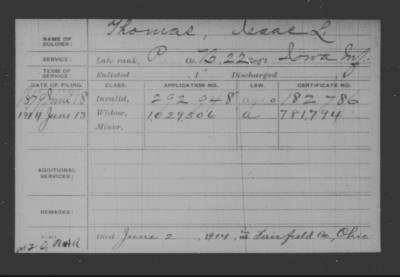 Thomas, Isaac L.
NAME OF SOLDIER:
SERVICE: Late rank, P Co. B, 22 Reg't Iowa Inf.
TERM OF SERVICE: Enlisted , 1 Discharged ,
DATE OF FILING. CLASS. APPLICATION NO. LAW. CERTIFICATE NO.
1879 June 18 Invalid, 292 948 182 786
1914 June 13 Widow, 1,029,506 a 781,794
Minor,
ADDITIONAL SERVICES:
REMARKS:
Died June 2, 1914, in Fairfield Co., Ohio